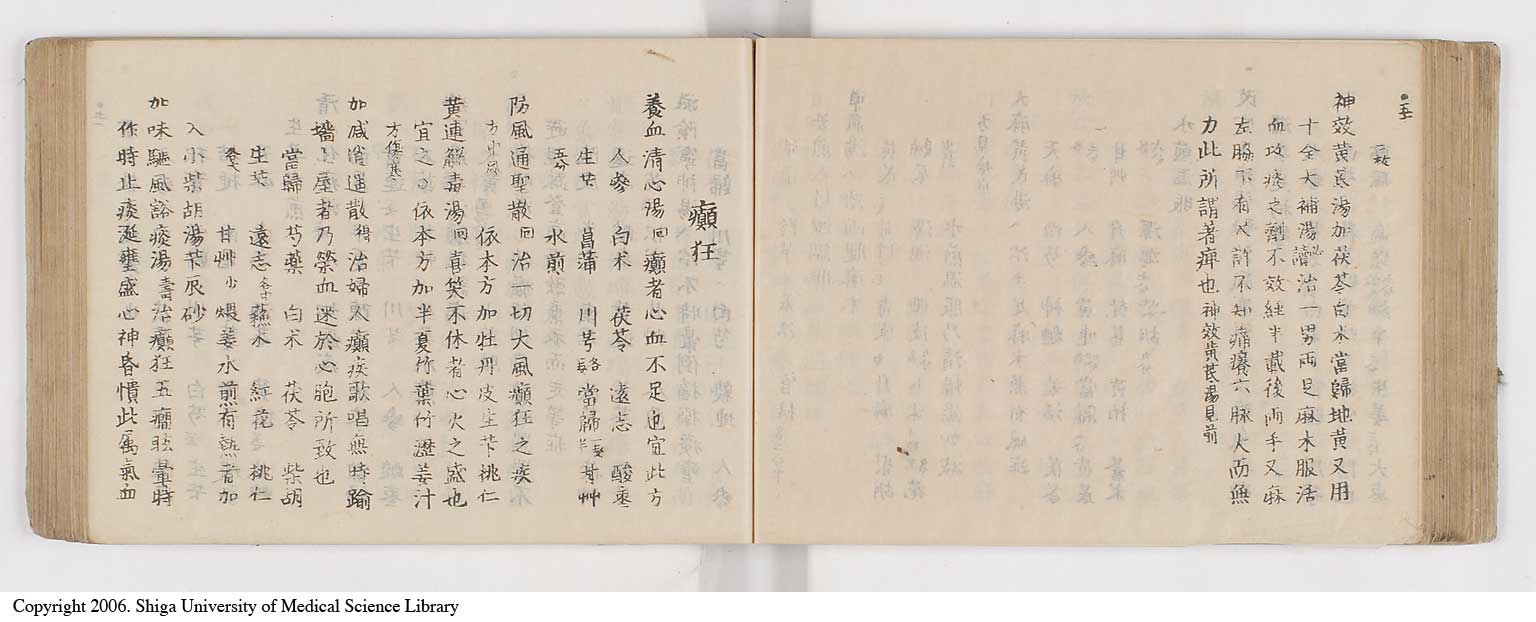 神效黄芪湯加茯苓白朮當歸地黄又用
十全大補湯 治一男両足麻木服活
血攻痰之劑不效経半載後両手又麻
左脇下有尺許不知痛癢六脉大而無
力此所謂著痺也神效黄芪湯見前
癲狂
養血清心湯回癲者心血不足也宜此方
人參 白朮 茯苓 遠志 酸棗
生芐 菖蒲 川芎 當歸 甘艸
水煎
防風通聖散回治一切大風癲狂之疾
依本方加牡丹皮生芐桃仁
黄連解毒湯回喜笑不休者心火之盛也
宜之 依本方加半夏竹葉竹瀝姜汁
加减逍遥散 治婦人癲疾歌唱無時踰
墻上屋者乃榮血迷於心胞所致也
當歸 芍藥 白朮 茯苓 柴胡
生芐 遠志 蘓木 紅花 桃仁
甘艸少 煨姜水煎有熱者加
入小柴胡湯 辰砂
加味驅風豁痰湯 治癲狂五癇眩暈時
作時止痰涎壅盛心神昏憒此属氣血
Copyright 2006. Shiga University of Medical Science Library